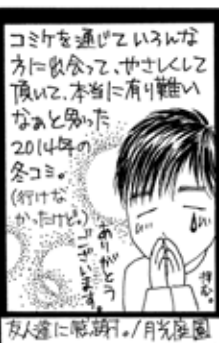 コミケを通じていろんな
方に出会って、やさしくして
頂いて、本当に有り難い
なぁと思った
2014年の
冬コミ。
(行けな
かったけど。)
ありがとう
ございます。
拝む。
友人達に感謝。/月光庭園